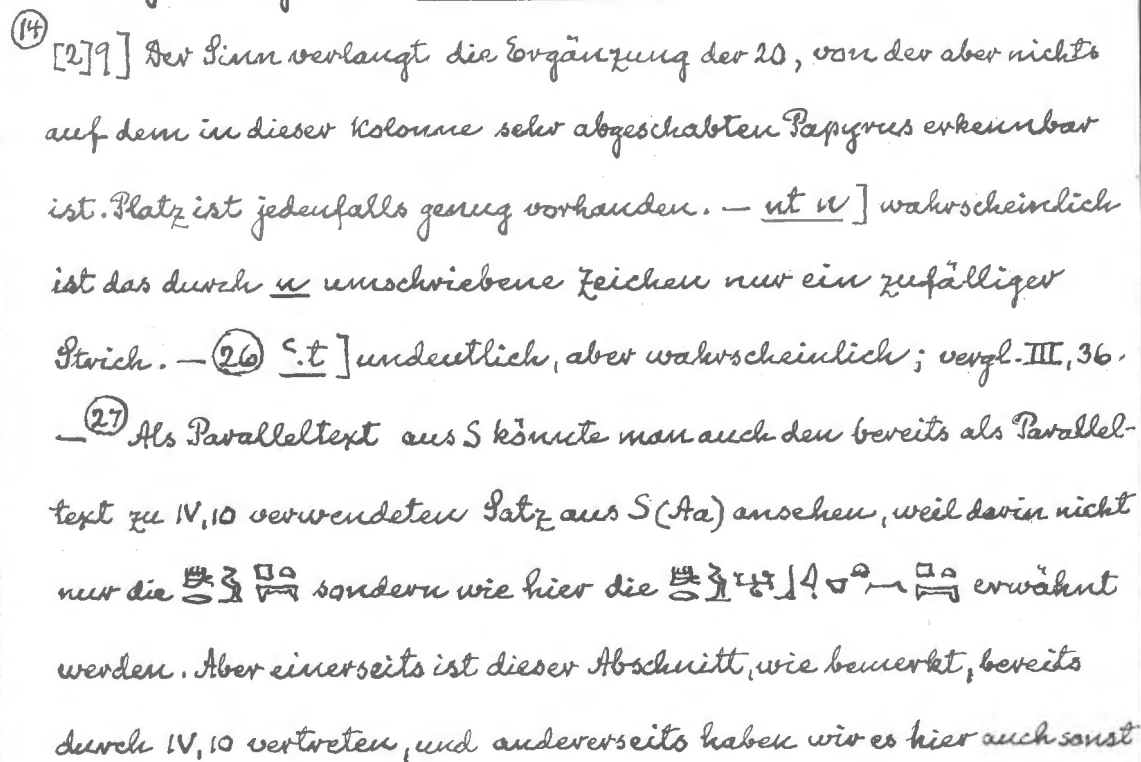 (14) [2]9] Der Sinn verlangt die Ergänzung der 20, von der aber nichts
auf dem in dieser Kolonne sehr abgeschabten Papyrus erkennbar
ist. Platz ist jedenfalls genug vorhanden. — nt n] wahrscheinlich
ist das durch n umschriebene Zeichen nur ein zufälliger
Strich. — (26) ꜥ.t] undeutlich, aber wahrscheinlich; vergl. III, 36.
— (27) Als Paralleltext aus S könnte man auch den bereits als Parallel-
text zu IV,10 verwendeten Satz aus S(Aa) ansehen, weil darin nicht
nur die sondern wie hier die erwähnt
werden. Aber einerseits ist dieser Abschnitt, wie bemerkt, bereits
durch IV,10 vertreten, und andererseits haben wir es hier auch sonst